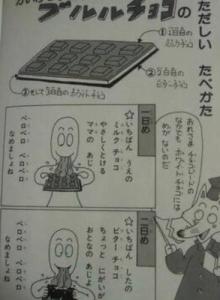 ブルルチョコの
ただしい たべかた
①1日目の
ミルクチョコ
②2日目の
ビターチョコ
③そして3日目の
ホワイトチョコ
一日め
☆いちばん うえの
ミルク チョコ
やさしくとける
ママの あじ
ペロペロ ペロペロ
なめましょね
おれさま チョコレートの
なかでも、ホワイトチョコには
めが ないのだ
二日め
☆いちばん したの
ビター チョコ
ちょっと にがいが
おとなの あじよ
ペロペロ ペロペロ
なめましょね